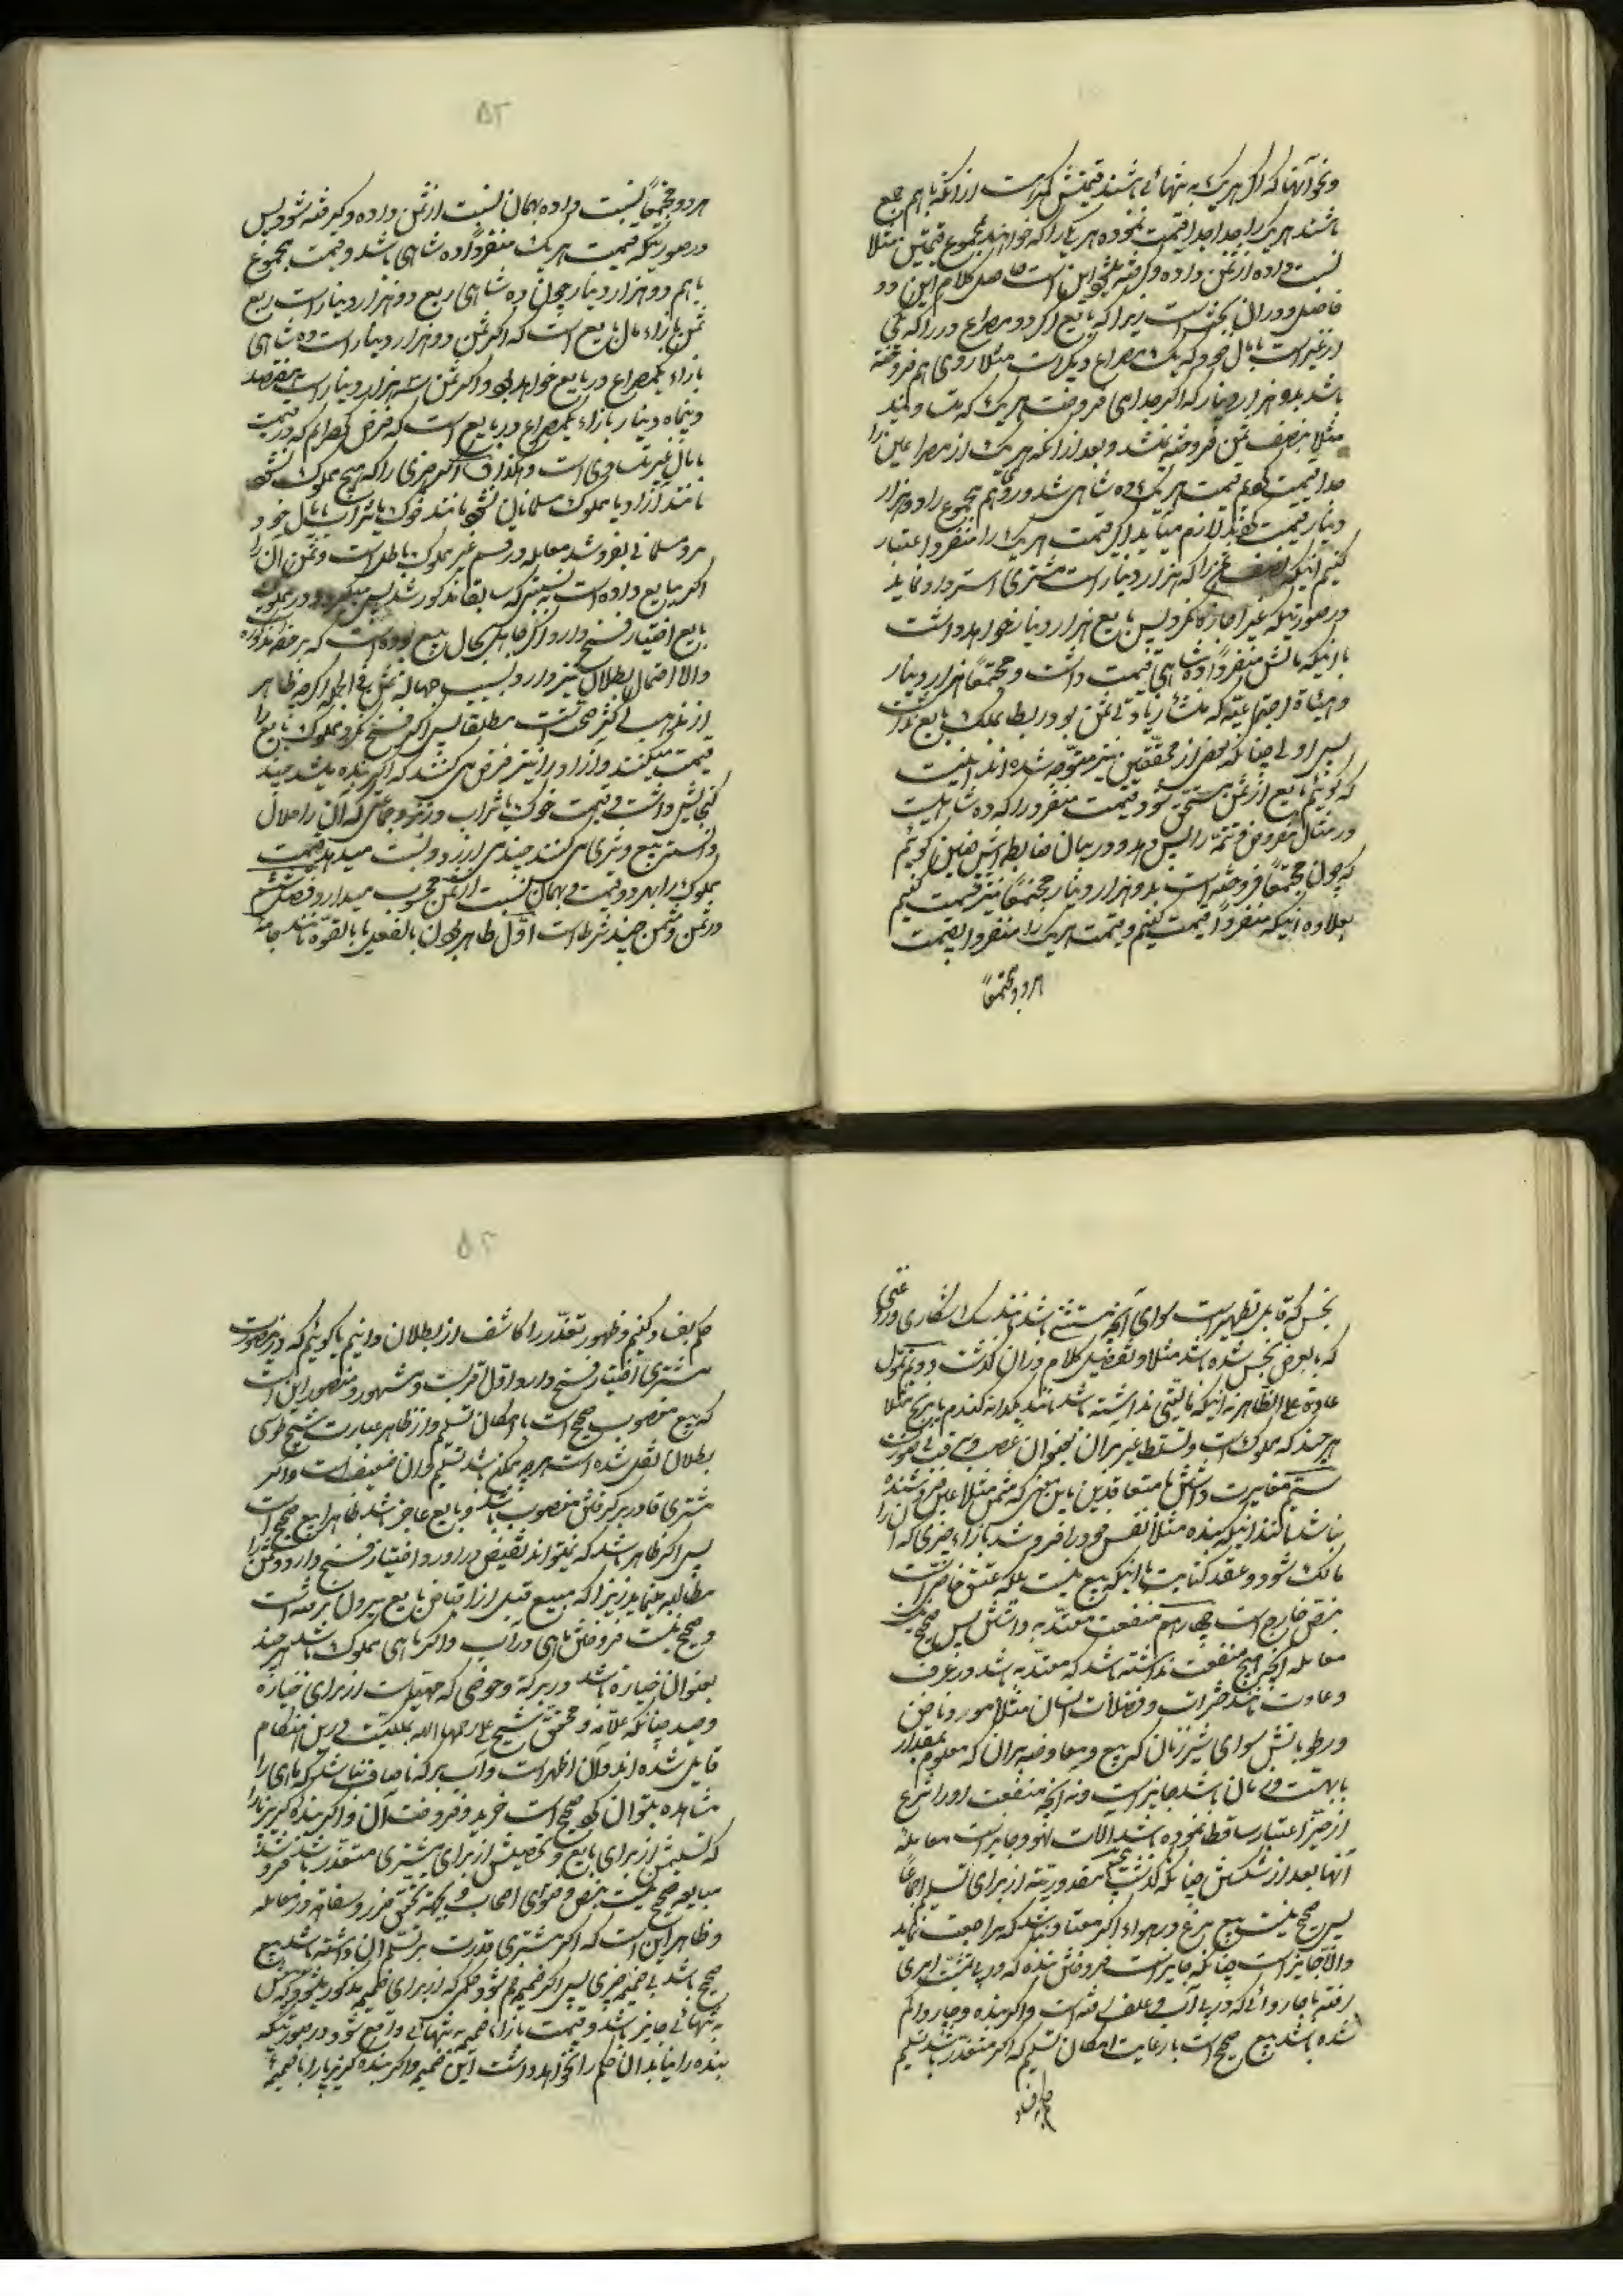 ونحو آنها که اگر هر یک به تنهائی باشند قیمتش کمتر است از آنکه با هم جمع
باشند هر یک را جدا جدا قیمت نموده هر یکی را که خواهند بمجموع قیمتین مثلا
نسبت داده از ثمن داده و گرفته میشود این است حاصل کلام این دو
فاضل و در آن بحث است زیرا که بایع اگر دو مصراع در را که یکی
از غیر است با مال خود که یک مصراع دیگر است مثلا روی هم فروخته
باشد بدو هزار دینار که اگر جدا می فروخت هر یک که
مثلا بنصف ثمن فروخته نمیشد و بعد از آنکه هر یک از مصراعین را
جدا قیمت کنیم قیمت هر یک ده شاهی شد و روی هم مجموع را دو هزار
دینار قیمت کنند لازم می آید اگر قیمت هر یک را منفردا اعتبار
کنیم اینکه نصف ثمن را که هزار دینار است مشتری استرداد نماید
در صورتیکه غیر اجازه نکرد پس بایع هزار دینار خواهد داشت
با اینکه مالش منفردا ده شاهی قیمت داشت و مجتمعا هزار دینار
و هیئات اجتماعیه که منشاء زیادتی ثمن بود ربط بملک بایع نداشت
پس اولی چنانکه بعضی از محققین نیز متوجه شده اند اینست
که گوئیم بایع از ثمن مستحق شود قیمت منفرد را که ده شاهیست
در مثال مفروض و تتمه را پس دهد و در بیان ضابطه اش چنین گوئیم
که چون مجتمعا فروخته است بدو هزار دینار مجتمعا نیز قیمت کنیم
بعلاوه اینکه منفردا قیمت کنیم و قیمت هر یک را منفردا بقیمت
هر دو مجتمعا
۵۲
هر دو مجتمعا نسبت داده بهمان نسبت از ثمن داده و گرفته شود پس
در صورتیکه قیمت هر یک منفردا ده شاهی باشد و قیمت مجموع
با هم دو هزار دینار چون ده شاهی ربع دو هزار دینار است ربع
ثمن بازاء مال بایع است که اگر ثمن دو هزار دینار است ده شاهی
بازاء یکمصراع در بایع خواهد بود و اگر ثمن سه هزار دینار است هفتصد
و پنجاه دینار بازاء یکمصراع در بایع است که فرض کرده ایم که در قیمت
با مال غیر مساوی است و هکذا و اگر چیزی را که هیچ مملوک نشود
مانند آزاد یا مملوک مسلمانان نشود مانند خوک یا شراب با مال خود
مرد مسلمانی بفروشد معامله در قسم غیر مملوک باطل است و ثمن آن را
اگر ببایع داده است به نسبتی که سابقا مذکور شد پس میگیرد و در مملوک
بایع اختیار فسخ دارد اگر جاهل بحال مبیع بوده است که بر حصه مذکوره
والا احتمال بطلان نیز دارد بسبب جهالت ثمن فی الجمله اگرچه ظاهر
از مذاهب اکثر صحت است مطلقا پس اگر فسخ نکرد مملوک بایع را
قیمت میکنند و آزاد را نیز فرض می کنند که اگر بنده باشد چند
گنجایش داشت و قیمت خوک یا شراب در نزد جماعتی که آن را حلال
دانسته بیع و شری می کنند چند می ارزد و نسبت میدهد قیمت
مملوک را بهر دو قیمت و بهمان نسبت از ثمن محسوب میدارد فصل ششم
در ثمن و مثمن چند شرط است اول طاهر بودن بالفعل یا بالقوه مانند جامه
نجس که قابل تطهیر است سوای آنچه مستثنی باشد مانند سگ شکاری و روغنی
که بالعرض نجس شده باشد مثلا و تفصیل کلام در آن گذشت دویم تمول
عادة علی الظاهر نه اینکه مالیتی نداشته باشد مانند یکدانه گندم یا برنج مثلا
هر چند که مملوک است و تسلط غیر بر آن بعنوان غصب
سیم مغایرت داشتن با متعاقدین باین معنی که مثمن مثلا عین فروشنده
نباشد مانند اینکه بنده مثلا نفس خود را فروشد بازاء چیزی که آن را
مالک شود و عقد کتابت با اینکه بیع نیست بلکه عتق خاصی است
بنص خارج است چهارم منفعت معتد به داشتن پس صحیح نیست
معامله آنچه هیچ منفعت نداشته باشد که معتد به باشد در عرف
و عادت مانند حشرات و فضلات انسان مثلا مو و ناخن
و رطوباتش سوای شیر زنان که بیع و معاوضه بر آن که معلوم بمقدار
یا بمدت و زمان باشد جایز است و نه آنچه منفعت او را شرع
از حیز اعتبار ساقط نموده باشد آلات لهو و جایز است معامله
آنها بعد از شکستن چنانکه گذشت پنجم مقدوریت از برای تسلیم اجماعا
پس صحیح نیست بیع مرغ در هواء اگر معتاد نباشد که مراجعت نماید
والا جایز است چنانکه جایز است فروختن بنده که در پی مشیت امری
رفته یا چاروائی که در پی آب و علف رفته است و اگر بنده و چاروا گم
شده باشد بیع صحیح است با رعایت امکان تسلیم که اگر متعذر باشد تسلیم
حکم بفساد
۵۳
حکم بفساد کنیم و ظهور تعذر را کاشف از بطلان دانیم یا گوئیم که در اینصورت
مشتری اختیار فسخ دارد و اول اقربست و مشهور و منصور این است
که بیع مغصوب صحیح است با امکان تسلیم و از ظاهر عبارت شیخ طوسی
بطلان نقل شده است هر چه ممکن باشد تسلیم و آن ضعیف است و اگر
مشتری قادر بر گرفتن مغصوب باشد و بایع عاجز باشد ظاهرا بیع صحیح است
پس اگر ظاهر باشد که نمیتواند بقبض درآورد اختیار فسخ دارد و ثمن را
مطالبه مینماید زیرا که مبیع قبل از اقباض بایع بیرون نرفته است
و صحیح نیست فروختن ماهی در آب و اگر ماهی مملوک باشد هر چند
بعنوان حیازه باشد در برکه و حوضی که مهیا است از برای حیازه
و صید چنانکه علامه و محقق شیخ علی رحمهما الله بملکیت در این مقام
قایل شده اند و آن اظهر است و آب برکه نا صاف نباشد که ماهی را
مشاهده بتوان کرد صحیح است خرید و فروخت آن و اگر بنده گریزپا را
که تسلیمش از برای بایع و تحصیلش از برای مشتری متعذر باشد فروشد
مبایعه صحیح نیست بنص و فتوای اصحاب و بجهة تحقق غرر و سفاهت در معامله
و ظاهر این است که اگر مشتری قدرت بر تسلم آن داشته باشد بیع
صحیح باشد بی ضمیمه چیزی پس اگر ضمیمه هم شود حکمی که از برای ضمیمه مذکور میشود که بیعش
به تنهائی جایز باشد و قیمت بازاء ضمیمه به تنهائی واقع شود در صورتیکه
بنده را نیابد آن حکم را نخواهد داشت این ضمیمه و اگر بنده گریزپا را با ضمیمه